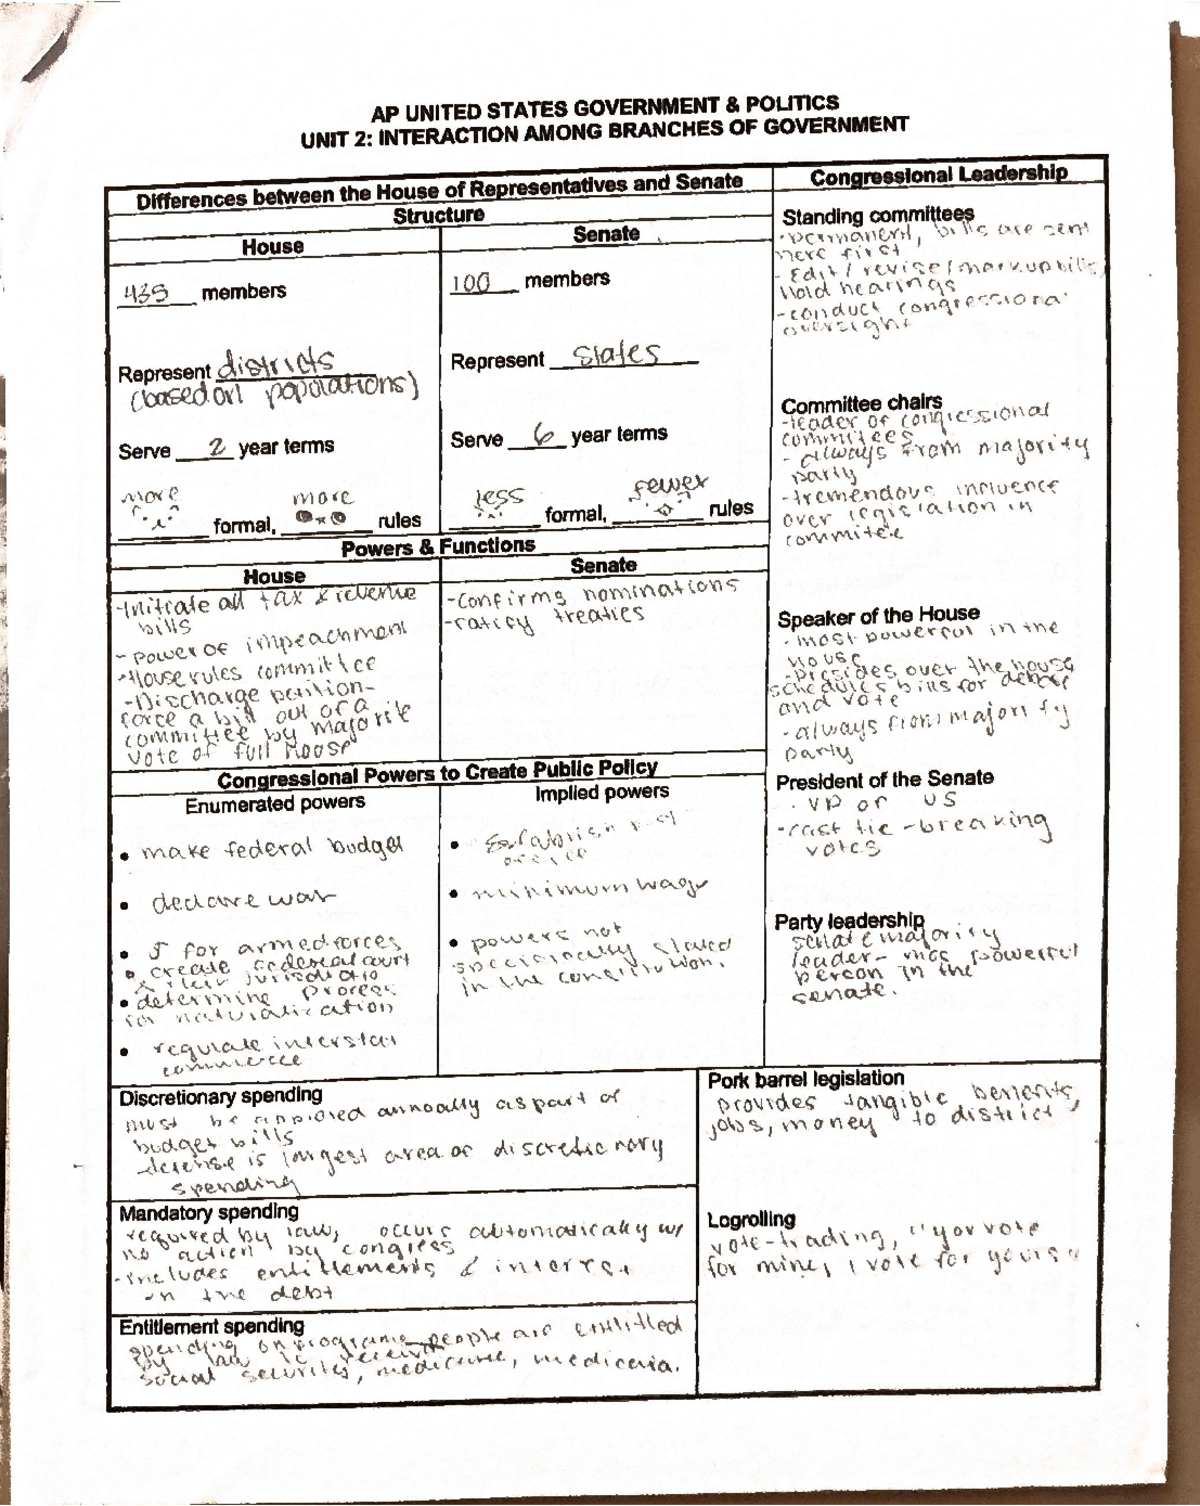 AP UNITED STATES GOVERNMENT & POLITICS
UNIT 2: INTERACTION AMONG BRANCHES OF GOVERNMENT
Differences between the House of Representatives and Senate
Structure
House
435 members
Represent districts
(based on populations)
Serve 2 year terms
more formal, more rules
Senate
100 members
Represent states
Serve 6 year terms
less formal, fewer rules
Powers & Functions
House
-Initiate all tax & revenue
bills
- power of impeachment
-House rules committee
-Discharge petition-
force a bill out of a
committee by majorite
vote of full House
Senate
-Confirms nominations
-ratify treaties
Congressional Powers to Create Public Policy
Enumerated powers
• make federal budget
• declare war
• for armed forces
• create federal court
& their jurisdictio
• determine process
for naturalization
• regulate interstat
commerce
Implied powers
•
• minimum wage
• powers not
specifically stated
in the constitution.
Congressional Leadership
Standing committees
-permanent, bills are sent
here first
- Edit / revise / markup bills,
Hold hearings
-conduct congressional
oversight
Committee chairs
-leader of congressional
committees
- always from majority
party
-tremendous influence
over legislation in
commitee
Speaker of the House
- most powerful in the
House
-presides over the house
schedules bills for debate
and vote
-always from majority
party
President of the Senate
- VP of US
-cast tie-breaking
votes
Party leadership
senate majority
leader- powerful
person in the
senate.
Discretionary spending
must be approved annually as part of
budget bills
defense is largest area of discretionary
spending
Mandatory spending
required by law, occurs automatically w/
no action by congress
-includes entitlements &
on the debt
Entitlement spending
spending on programs people are entitled
by law to receive
social security, medicare,
Pork barrel legislation
provides tangible benefits,
jobs, money to district
Logrolling
vote-trading, "yor vote
for mine, I vote for yours"